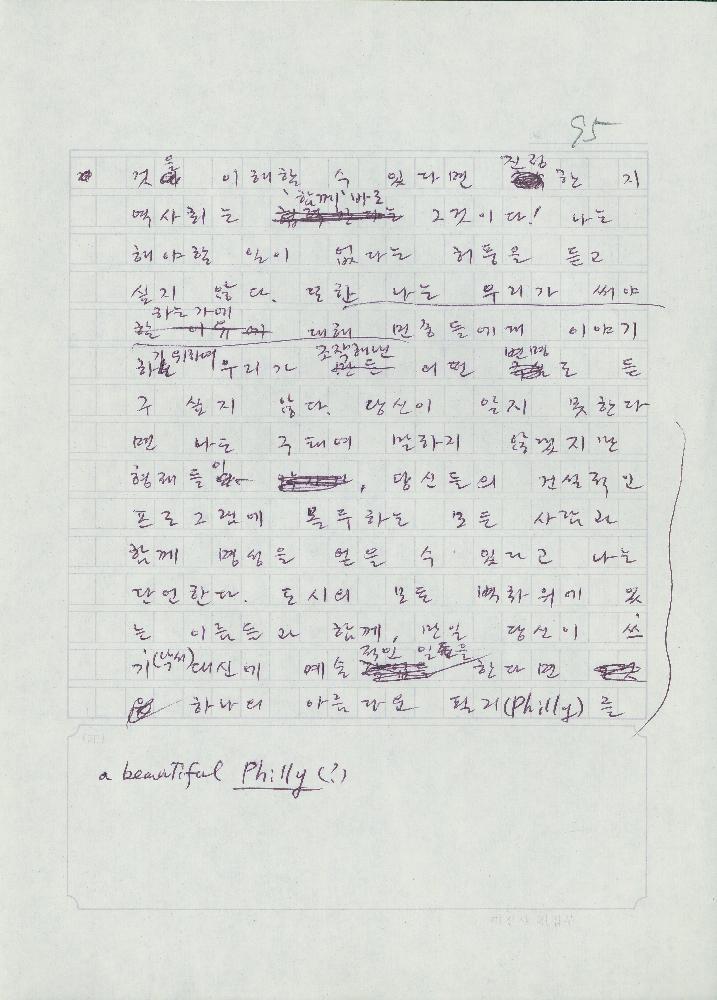 95
것을 이해할 수 있다면 진정한 지
역사회는 '함께' 바로 그것이다! 나는
해야할 일이 없다는 허풍을 듣고
싶지 않다. 또한 나는 우리가 써야
하는가에 대해 민중들에게 이야기
하기 위하여 우리가 조작해낸 어떤 변명도 듣
구 싶지 않다. 당신이 알지 못한다
면 나는 구태여 말하지 않겠지만
형제들, 당신들의 건설적인
프로그램에 몰두하는 모든 사람과
함께 명성을 얻을 수 있다고 나는
단언한다. 도시의 모든 벽화위에 있
는 이름들과 함께, 만일 당신이 쓰
기(낙서)대신에 예술적인 일을 한다면
하나의 아름다운 필리(Philly)를
a beautiful Philly (?)